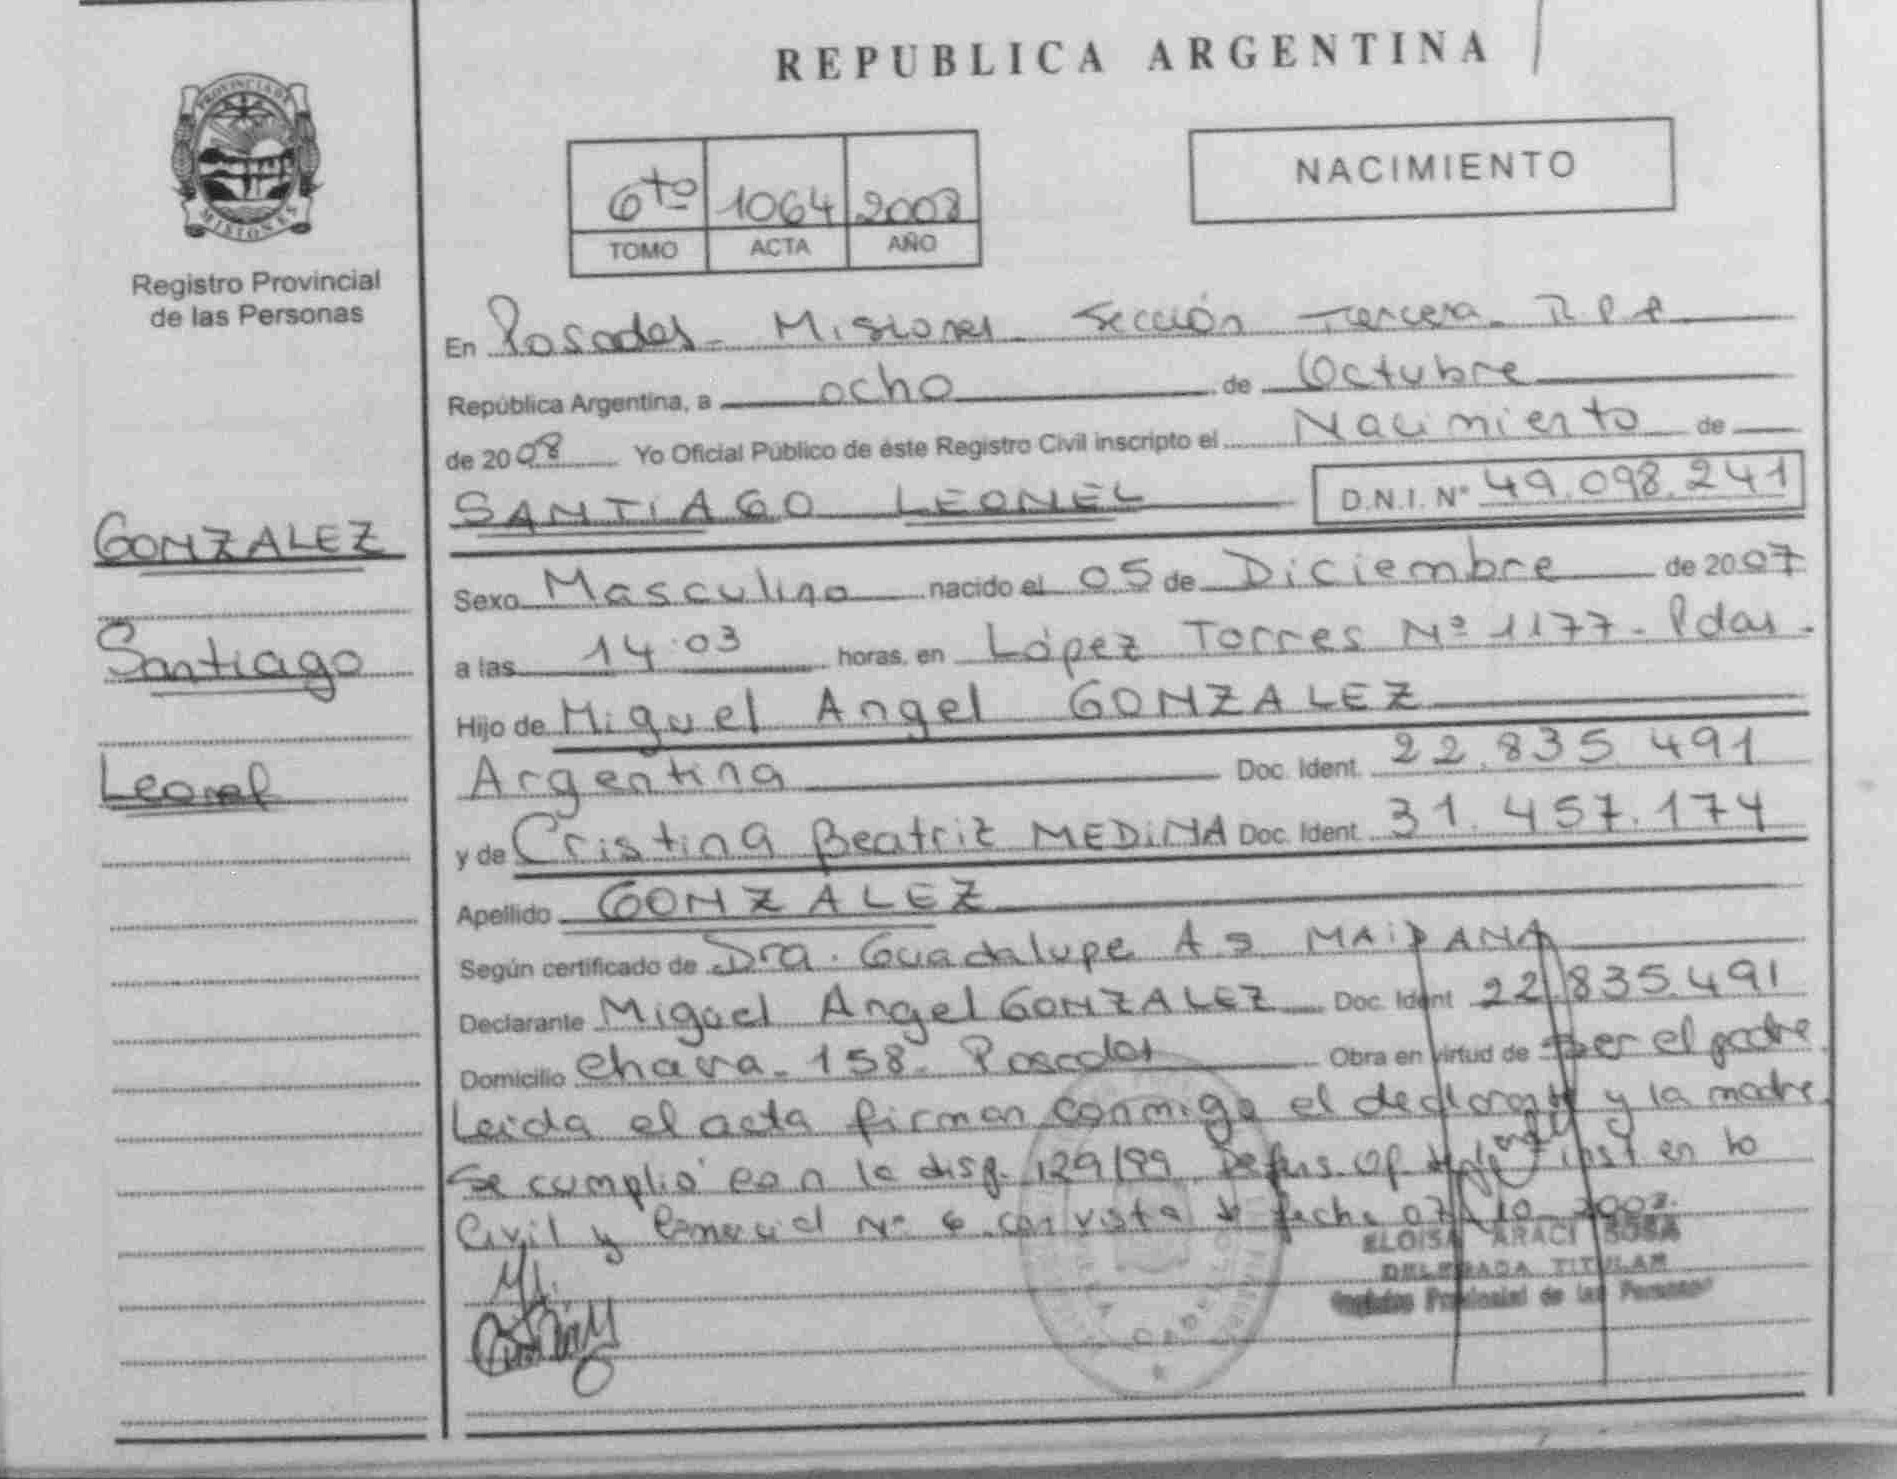 REPUBLICA ARGENTINA
PROVINCIA DE
MISIONES
Registro Provincial
de las Personas
6to 1064 2008
TOMO ACTA AÑO
NACIMIENTO
En Posadas - Misiones - Sección Tercera - R P P
República Argentina, a ocho de Octubre
de 2008 Yo Oficial Público de éste Registro Civil inscripto el Nacimiento de
SANTIAGO LEONEL D.N.I. Nº 49.098.241
GONZALEZ
Santiago
Leonel
Sexo Masculino nacido el 05 de Diciembre de 2007
a las 14:03 horas, en López Torres Nº 1177 - Pdas.
Hijo de Miguel Angel GONZALEZ
Argentina Doc. Ident. 22.835.491
y de Cristina Beatriz MEDINA Doc. Ident. 31.457.174
Apellido GONZALEZ
Según certificado de Dra. Guadalupe A S MAIDANA
Declarante Miguel Angel GONZALEZ Doc. Ident 22.835.491
Domicilio 158 - Posadas Obra en virtud de ser el padre.
Leida el acta firman conmigo el declarante y la madre.
Se cumplió con la disp. 129/99 Defens. Of inst en lo
Civil y Comercial Nº 6 con vista fecha 07-10-2008.
ELOISA ARACI SOSA
DELEGADA TITULAR
Registro Provincial de las Personas